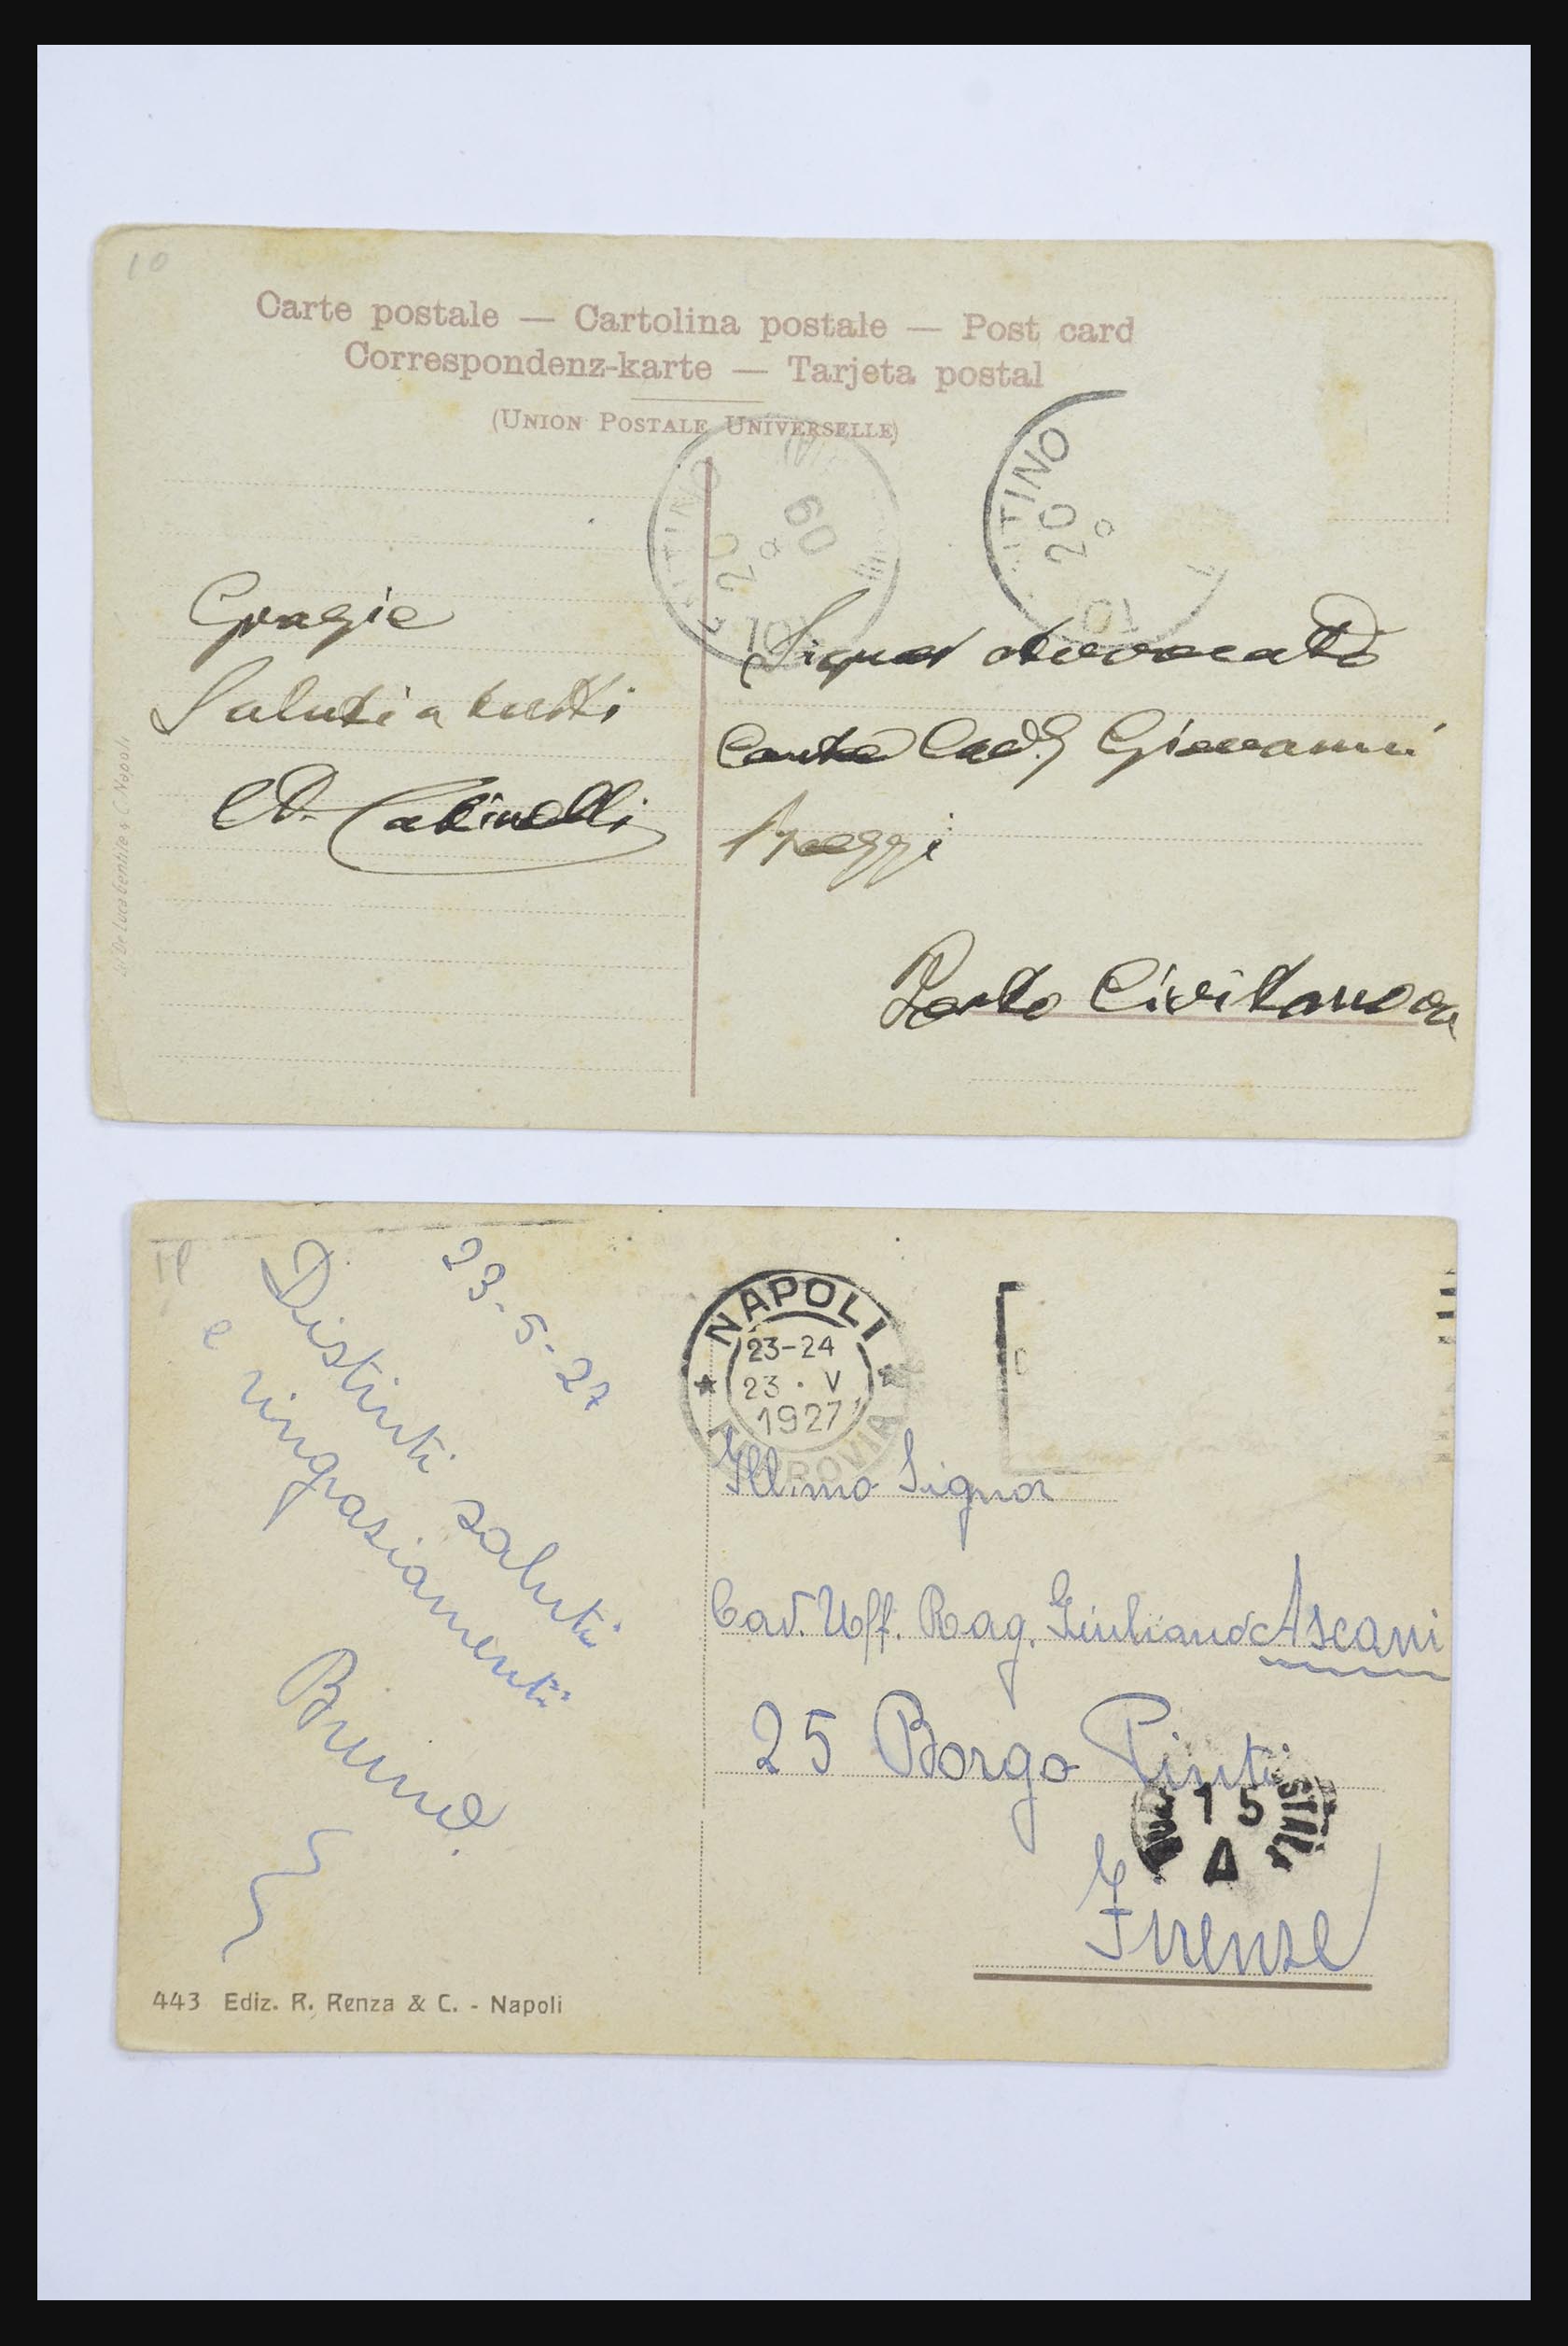 10
Carte postale — Cartolina postale — Post card
Correspondenz-karte — Tarjeta postal
(UNION POSTALE UNIVERSELLE)
TINO
20
09
10
ITINO
20
10
Grazie
Saluti a tutti
Signor Avvocato
Conte Giovanni
Porto Civitanova
De Luca Gentile & C Napoli
23-5-27
Distinti saluti
e ringraziamenti
Bruno
NAPOLI
23-24
23 · V
1927
FERROVIA
Ill.mo Signor
Cav. Uff. Rag. Giuliano Ascani
25 Borgo Pinti
15
A
Firenze
443 Ediz. R. Renza & C. - Napoli